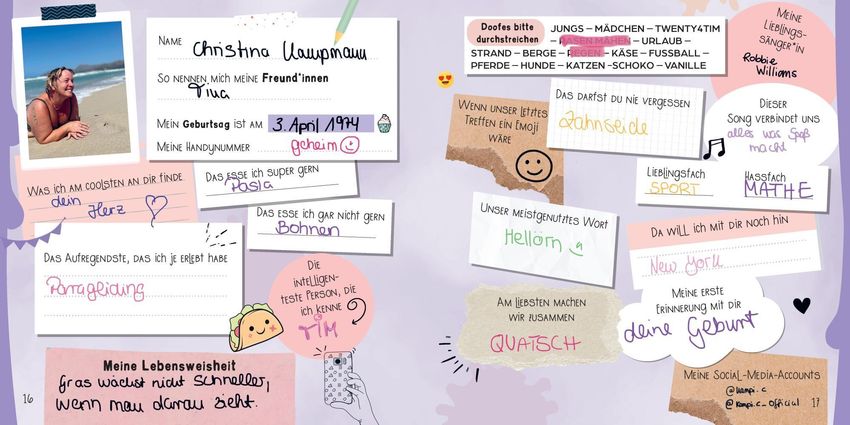 Name Christina Kampmann
So nennen mich meine Freund*innen
Tina
Mein Geburtsag ist am 3. April 1974
Meine Handynummer geheim
Was ich am coolsten an dir finde
dein Herz
Das esse ich super gern
Pasta
Das esse ich gar nicht gern
Bohnen
Das Aufregendste, das ich je erlebt habe
Paragleiding
Die
intelligen-
teste Person, die
ich kenne
TIM
Meine Lebensweisheit
Gras wächst nicht schneller,
wenn man daran zieht.
16
Doofes bitte
durchstreichen
Jungs – Mädchen – Twenty4Tim
– Rasen mähen – Urlaub –
Strand – Berge – Regen – Käse – Fussball –
Pferde – Hunde – Katzen -Schoko – Vanille
Meine
Lieblings-
sänger*in
Robbie
Williams
Wenn unser letztes
Treffen ein Emoji
wäre
Das darfst du nie vergessen
Zahnseide
Dieser
Song verbindet uns
alles was Spaß
macht
Lieblingsfach
SPORT
Hassfach
MATHE
Unser meistgenutztes Wort
Hellörn
Da will ich mit dir noch hin
New York
Am liebsten machen
wir zusammen
QUATSCH
Meine erste
Erinnerung mit dir
deine Geburt
Meine Social-Media-Accounts
@kampi.c
@kampi.c_official
17